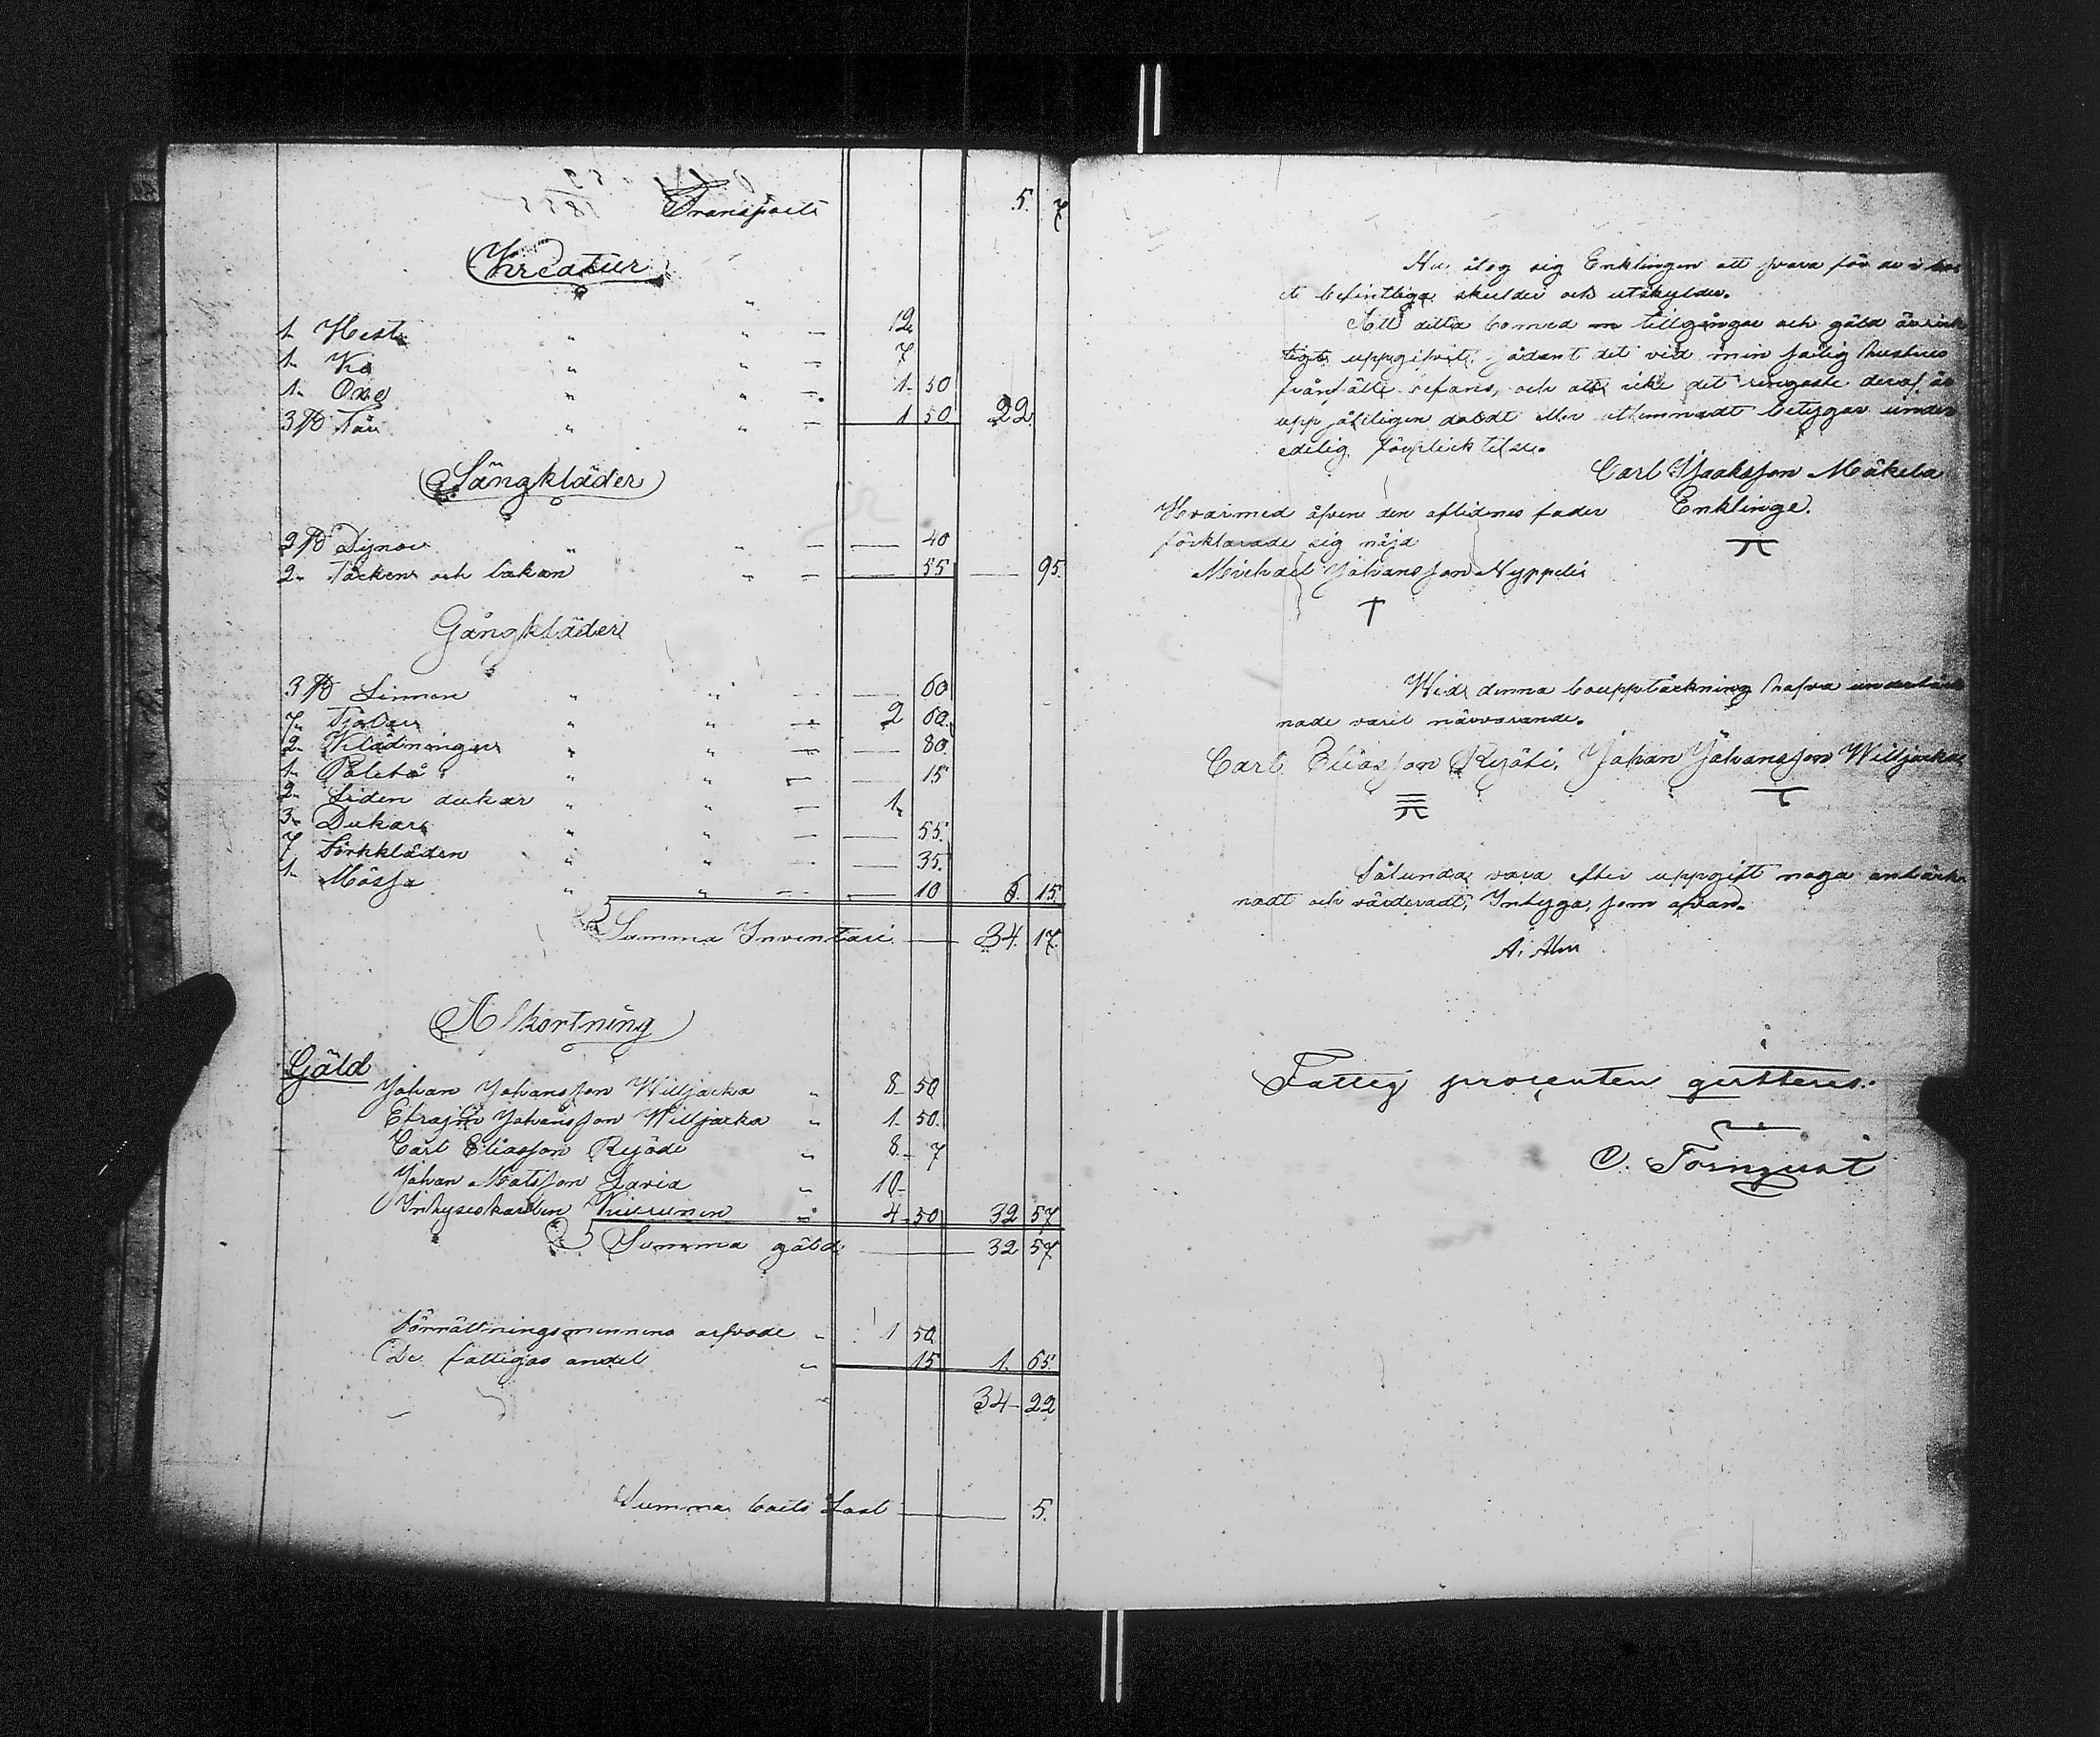 Transport 5. 7
Kreatur
1 Hest " " — 12
1 Ko " " — 7
1 Oxe " " — 1 50
3 st Får " " — 1 50 22
Sängkläder
2 st Dynor " " — — 40
2 Täcken och lakan " — — 55 — 95
Gångkläder
3 st Linnen " " — — 60
7 Tjolar " " — 2 60
2 Klädningar " " — — 80
1 Paletå " " — — 15
2 Siden dukar " " — 1
3 Dukar " " — — 55
7 Förkkläden " " — — 35
1 Mössa " " — — 10 6 15
Summa Inventarii — 34 17
Afkortning
Gäld
Johan Johansson Willjacka " 8 50
Efraim Johansson Willjacka " 1 50
Carl Eliasson Ryöti " 8 7
Johan Matsson Laria " 10
Inhyseskarlen 4 50 32 57
Summa gäld — 32 57
Förrättningsmännens arfvode " 1 50
De fattigas andel " 15 1 65
34 22
Summa boets Last — 5
Nu åtog sig Enklingen att svara för de i bo
et befintliga skulder och utskylder.
Att detta bo med tillgångar och gäld är rik
tigt uppgifvit, sådant det vid min salig hustrus
frånfälle befans, och att icke det ringaste deraf är
uppsåtligen doldt eller utlemnadt betygar under
edelig förplicktelse.
Carl Isaksson Mäkelä
Enklinge.
Hvarmed äfven den aflidnes fader
förklarade sig nöjd
Michael Johansson Nyppeli
Wid denna bouppteckning hafva undertäck
nade varit närvarande.
Carl Eliasson Ryöti, Johan Johansson Willjacka
Sålunda vara efter uppgift noga antäck
nadt och värderadt, Intyga, som ofvan.
A: Alm
Fattig procenten qvitteras.
C. Törnqvist